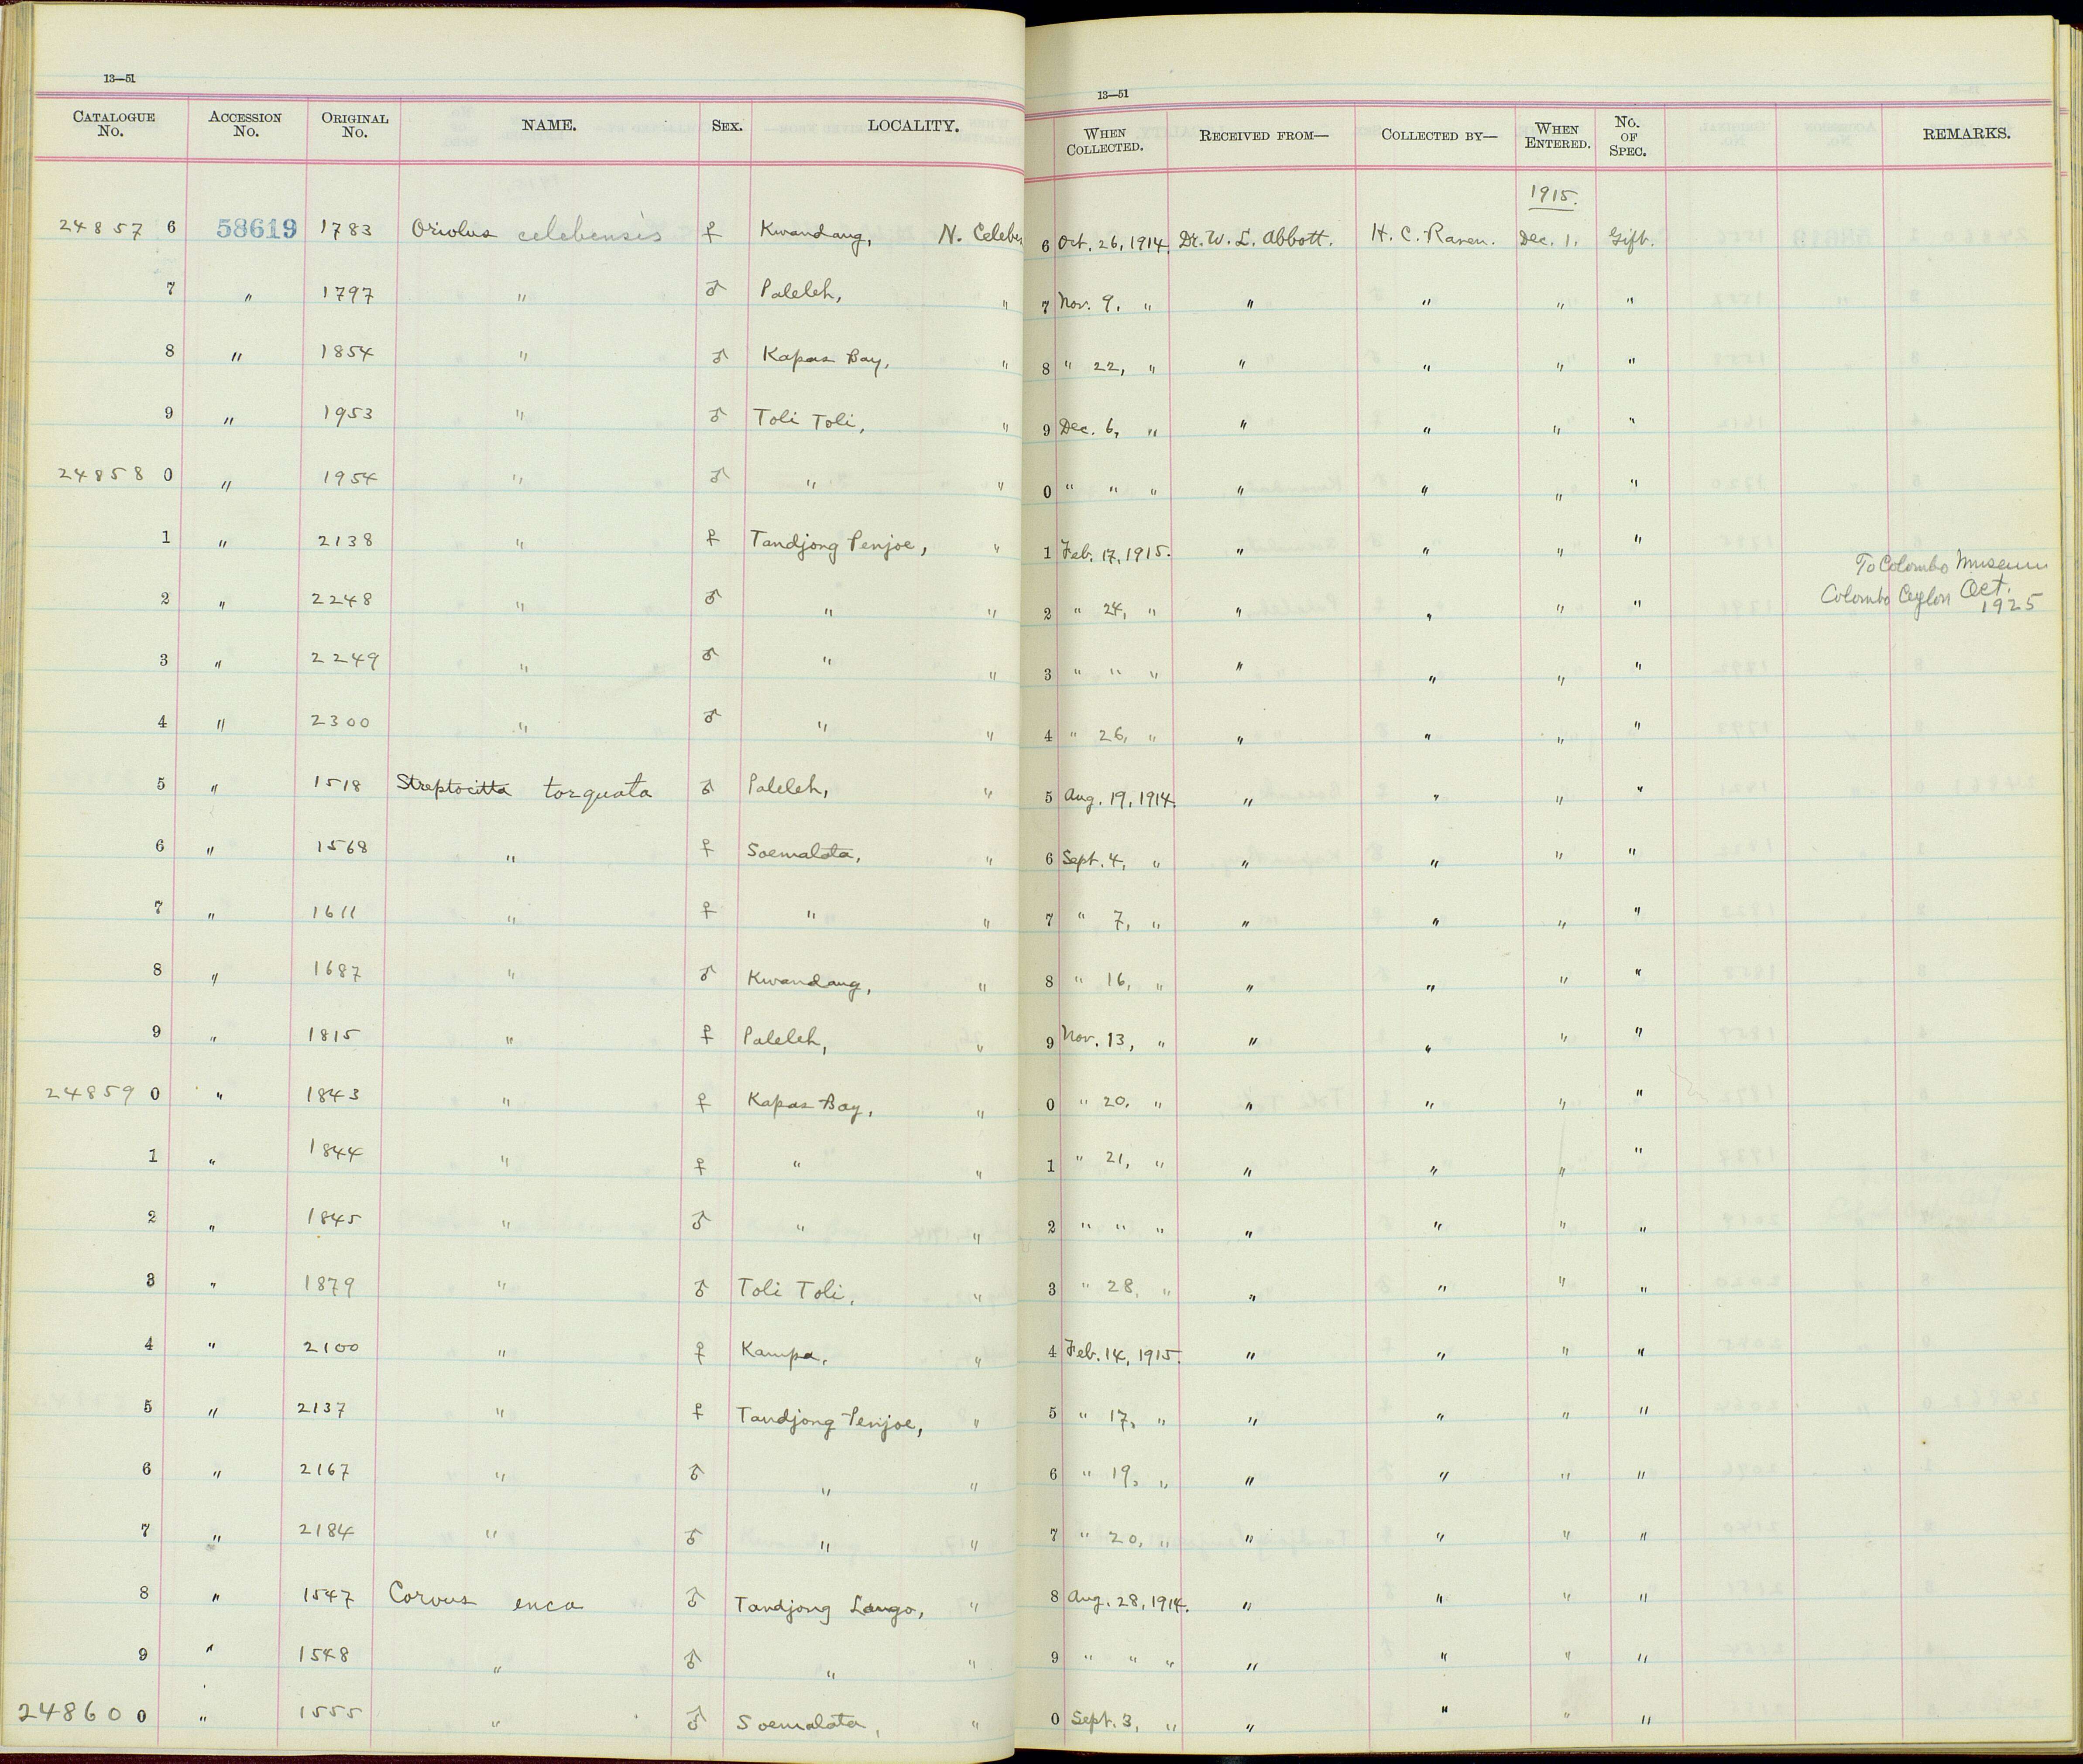 13—51
13—51
CATALOGUE No. ACCESSION No. ORIGINAL No. NAME. SEX. LOCALITY. WHEN COLLECTED. RECEIVED FROM— COLLECTED BY— WHEN ENTERED. No. OF SPEC. REMARKS.
1915.
24857 6 58619 1783 Oriolus celebensis ♀ Kwandang, N. Celebes 6 Oct. 26, 1914. Dr. W. L. Abbott. H. C. Raven. Dec. 1. Gift.
7 " 1797 " ♂ Paleleh, " 7 Nov. 9, " " " " "
8 " 1854 " ♂ Kapas Bay, " 8 " 22, " " " " "
9 " 1953 " ♂ Toli Toli, " 9 Dec. 6, " " " " "
24858 0 " 1954 " ♂ " " 0 " " " " " " "
1 " 2138 " ♀ Tandjong Penjoe, " 1 Feb. 17, 1915. " " " "
2 " 2248 " ♂ " " 2 " 24, " " " " " To Colombo Museum
Colombo Ceylon Oct. 1925
3 " 2249 " ♂ " " 3 " " " " " " "
4 " 2300 " ♂ " " 4 " 26, " " " " "
5 " 1518 Streptocitta torquata ♂ Paleleh, " 5 Aug. 19, 1914. " " " "
6 " 1568 " ♀ Soemalata, " 6 Sept. 4, " " " " "
7 " 1611 " ♀ " " 7 " 7, " " " " "
8 " 1687 " ♂ Kwandang, " 8 " 16, " " " " "
9 " 1815 " ♀ Paleleh, " 9 Nov. 13, " " " " "
24859 0 " 1843 " ♀ Kapas Bay, " 0 " 20, " " " " "
1 " 1844 " ♀ " " 1 " 21, " " " " "
2 " 1845 " ♂ " " 2 " " " " " " "
3 " 1879 " ♂ Toli Toli, " 3 " 28, " " " " "
4 " 2100 " ♀ Kampa, " 4 Feb. 14, 1915. " " " "
5 " 2137 " ♀ Tandjong Penjoe, " 5 " 17, " " " " "
6 " 2167 " ♂ " " 6 " 19, " " " " "
7 " 2184 " ♂ " " 7 " 20, " " " " "
8 " 1547 Corvus enca ♂ Tandjong Lango, " 8 Aug. 28, 1914. " " " "
9 " 1548 " ♂ " " 9 " " " " " " "
24860 0 " 1555 " ♂ Soemalata, " 0 Sept. 3, " " " " "